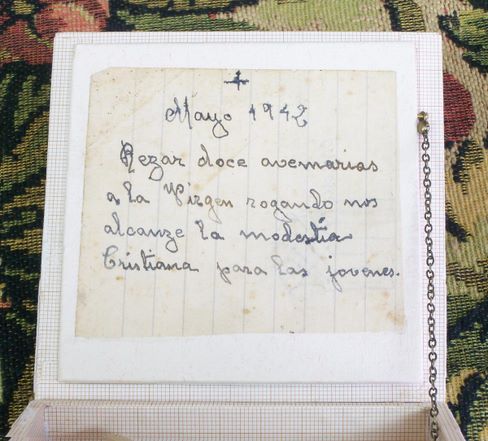 Mayo 1942
Rezar doce avemarias
a la Virgen rogando nos
alcanze la modestia
Cristiana para las jovenes.